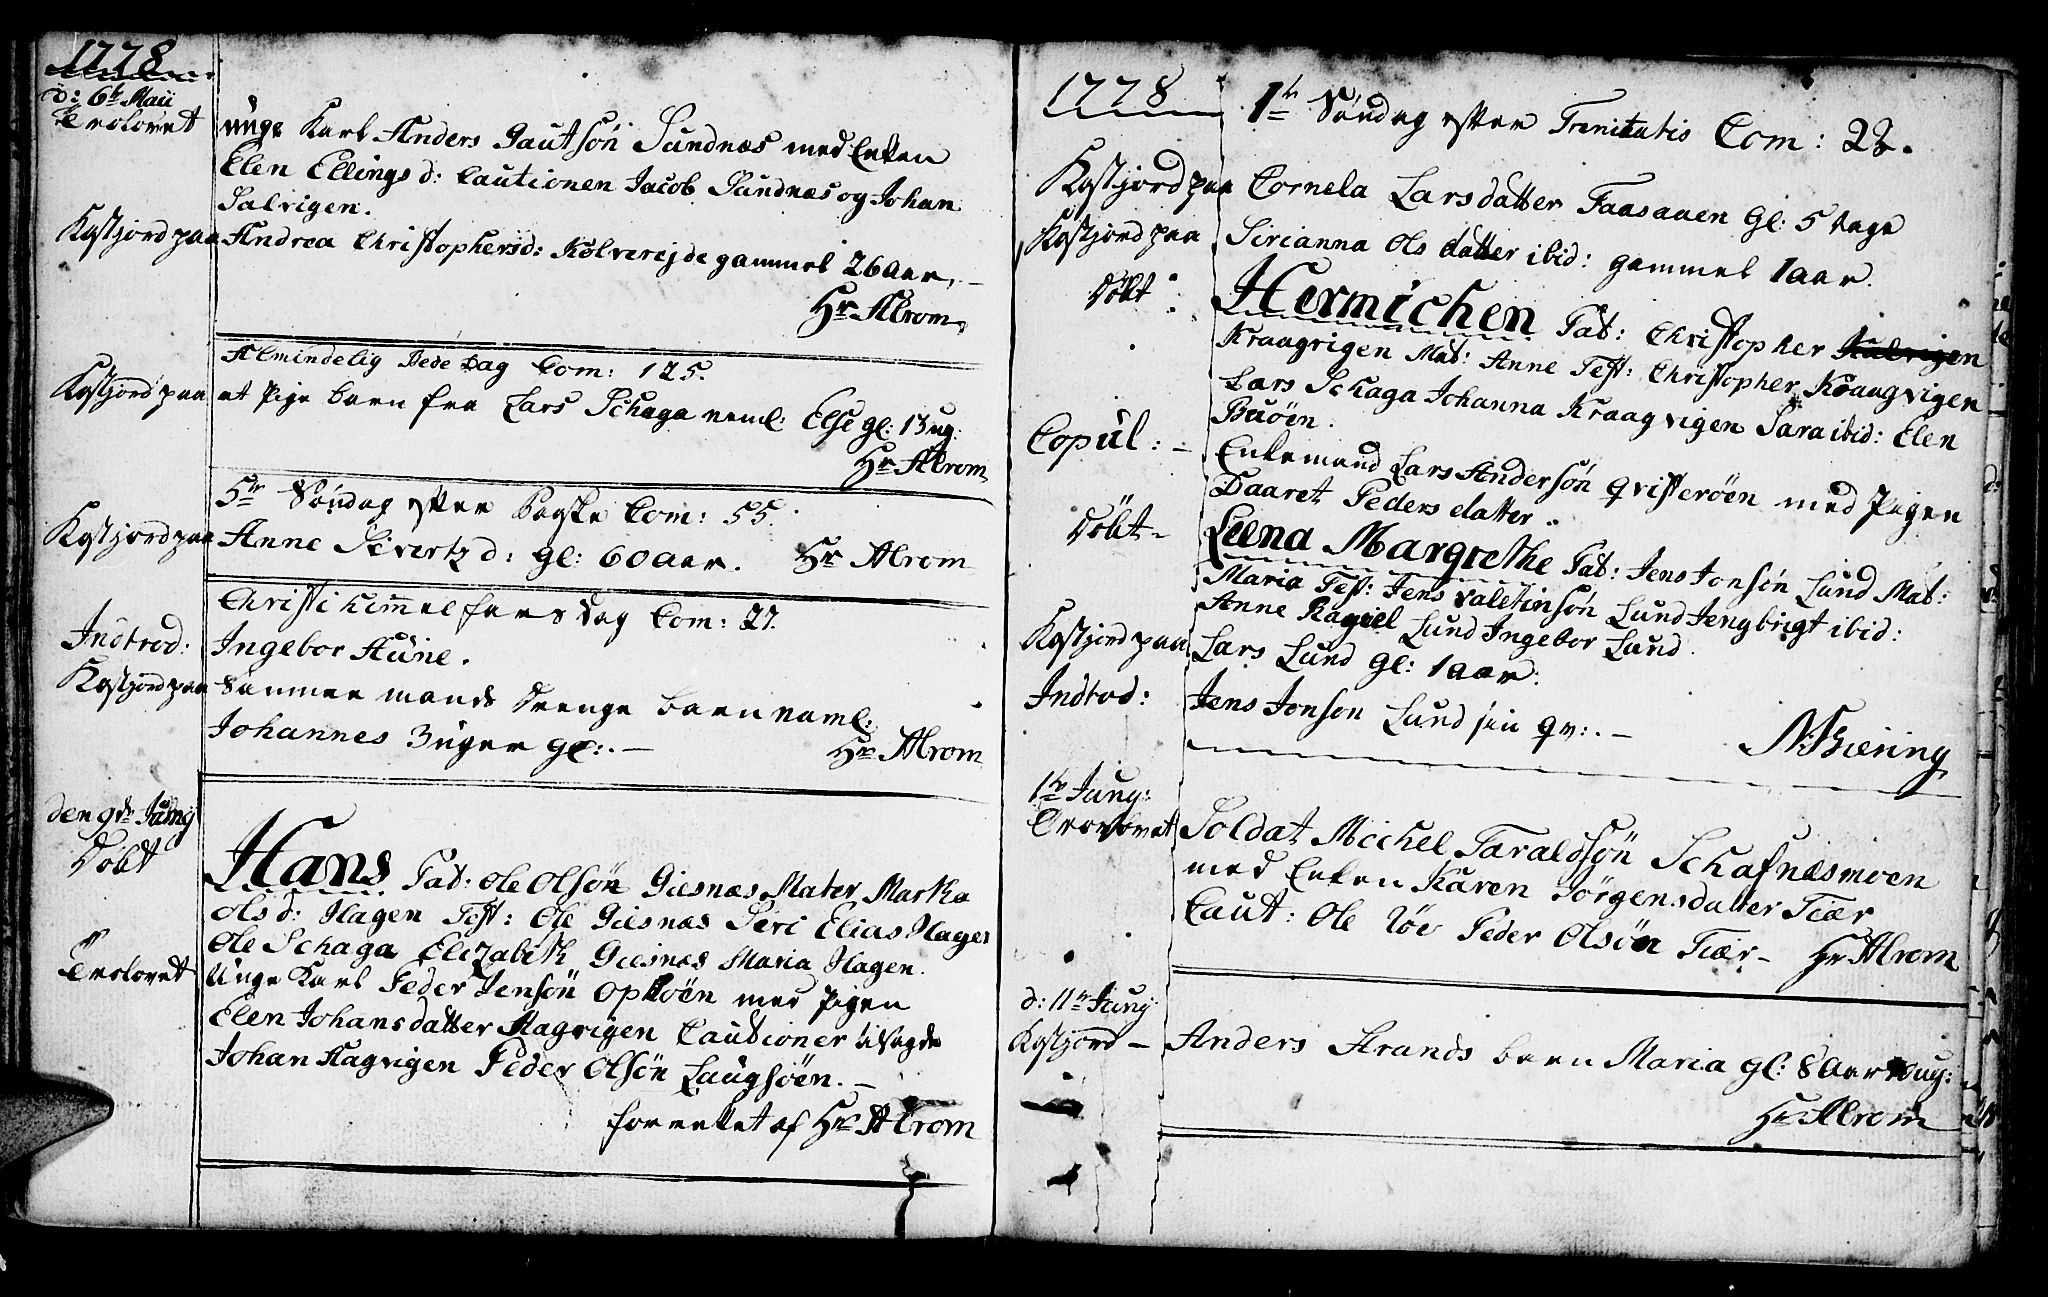 1778
d: 6te Maii
Trolovet
unge Karl Anders Gautsøn Sundnæs med Enken
Elen Ellings d: Cautionen Jacob Sundnæs og Johan
Salvigen.
Kastjord paa
Andrea Christophersd: Kolvereide gammel 26 Aar.
Hr Alrom.
Almindelig Bede Dag Com: 125.
Kastjord paa
et Pige barn fra Lars Schaga neml: Else gl: 13 ug:
Hr Alrom
5te Søndag efter Paaske Com: 55.
Kastjord paa
Anne Sivertzd: gl: 60 Aar. Hr Alrom
Christi himmelfarts dag Com: 27.
Indtrod:
Ingebor Aune.
Kastjord paa
Samme mands drenge barn naml:
Johannes 3 uger gl:. —
Hr Alrom
den 9de Juny
Døbt
Hans Pat: Ole Olsøn Giesnæs Mater Marka
Ols d: Hagen Test: Ole Giesnæs Siri Elias Hagen
Ole Schaga Elizabeth Giesnæs Maria Hagen.
Trolovet
Unge Karl Peder Jensøn Opløen med Pigen
Elen Johansdatter Aagvigen Cautioner tilsagde
Johan Aagvigen Peder Olsøn Laugsøen. —
forrettet af Hr Alrom
1778
1te Søndag efter Trinitatis Com: 22.
Kastjord paa
Cornela Larsdatter Faasauen gl: 5 dage
Kastjord paa
Sirianna Ols datter ibid: gammel 1 aar.
Døbt
Hermichen Pat: Christopher
Kraagvigen Mat: Anne Test: Christopher Kraagvigen
Lars Schaga Johanna Kraagvigen Sara ibid: Elen
Buøen.
Copul: —
Enkemand Lars Andersøn Qvisterøen med Pigen
Daaret Peders datter.
Døbt —
Leena Margrethe Pat: Jens Jonsøn Lund Mat:
Maria Test: Jens Valetinsøn Lund Jengbrigt ibid:
Anne Ragiel Lund Ingebor Lund.
Kastjord paa
Lars Lund gl: 1 aar:
Indtrod:
Jens Jonson Lund sin qv:. —
N: Bæring
1te Juny:
Trovlovet
Soldat Michel Taraldsøn Schafnæsmoen
med Enken Karen Jørgensdatter Tiær
Caut: Ole Røe Peder Olsøn Tiær — Hr Alrom
d: 11te Juny
Kastjord —
Anders Strands barn Maria gl: 8 Aar ug:
Hr Alrom